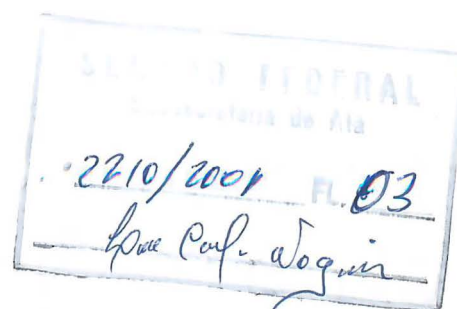 SENADO FEDERAL
Subsecretaria de Ata
2210/2001 FL. 03